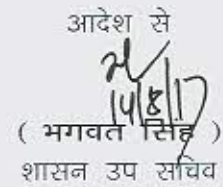 आदेश से
14/8/17
( भगवत सिंह )
शासन उप सचिव